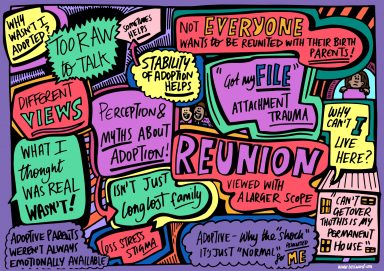 WHY
WASN'T I
ADOPTED?
TOO RAW
to TALK
SOMETIMES
HELPS
STABILITY
OF ADOPTION
HELPS
NOT EVERYONE
WANTS to BE REUNITED with THEIR BIRTH
PARENTS!
"Got my FILE
ATTACHMENT
TRAUMA
DIFFERENT
VIEWS
PERCEPTION &
MYTHS ABOUT
ADOPTION!
WHY
CAN'T I
LIVE
HERE?
WHAT I
thought
WAS REAL
WASN'T!
REUNION
VIEWED WITH
A LARGER SCOPE
ISN'T JUST
Long lost family
"CAN'T
GET OVER
THIS IS MY
PERMANENT
HOUSE"
ADOPTIVE PARENTS
WEREN'T ALWAYS
EMOTIONALLY AVAILABLE
LESS STRESS
STIGMA
ADOPTIVE - Why the "Shock"
IT'S JUST "NORMAL"
ME